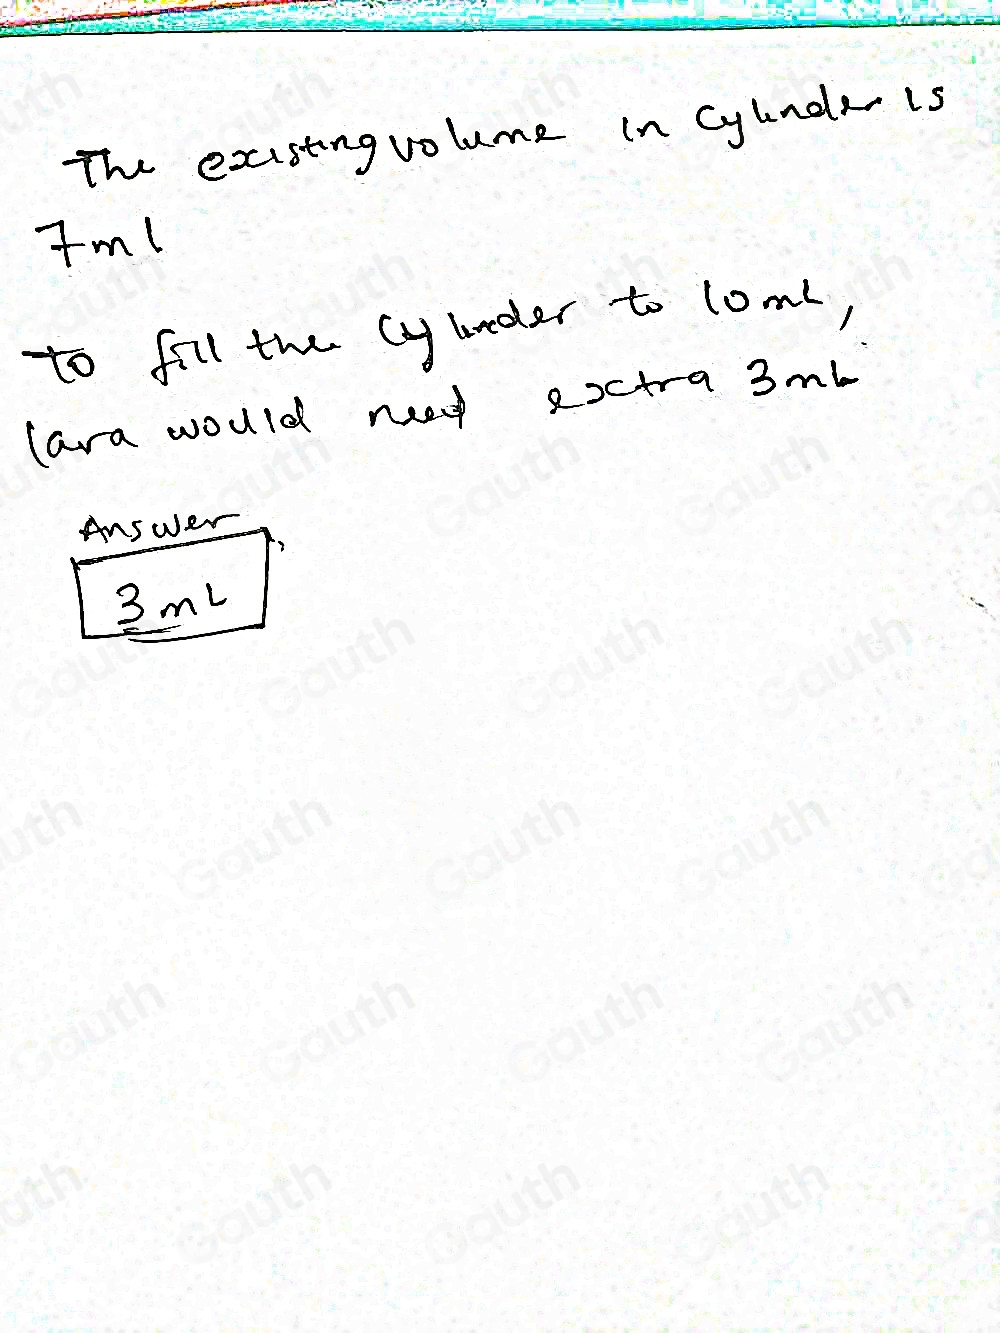 The existing volume in Cylinder is
7ml
To fill the Cylinder to 10mL,
lara would need extra 3mL
Answer
3mL